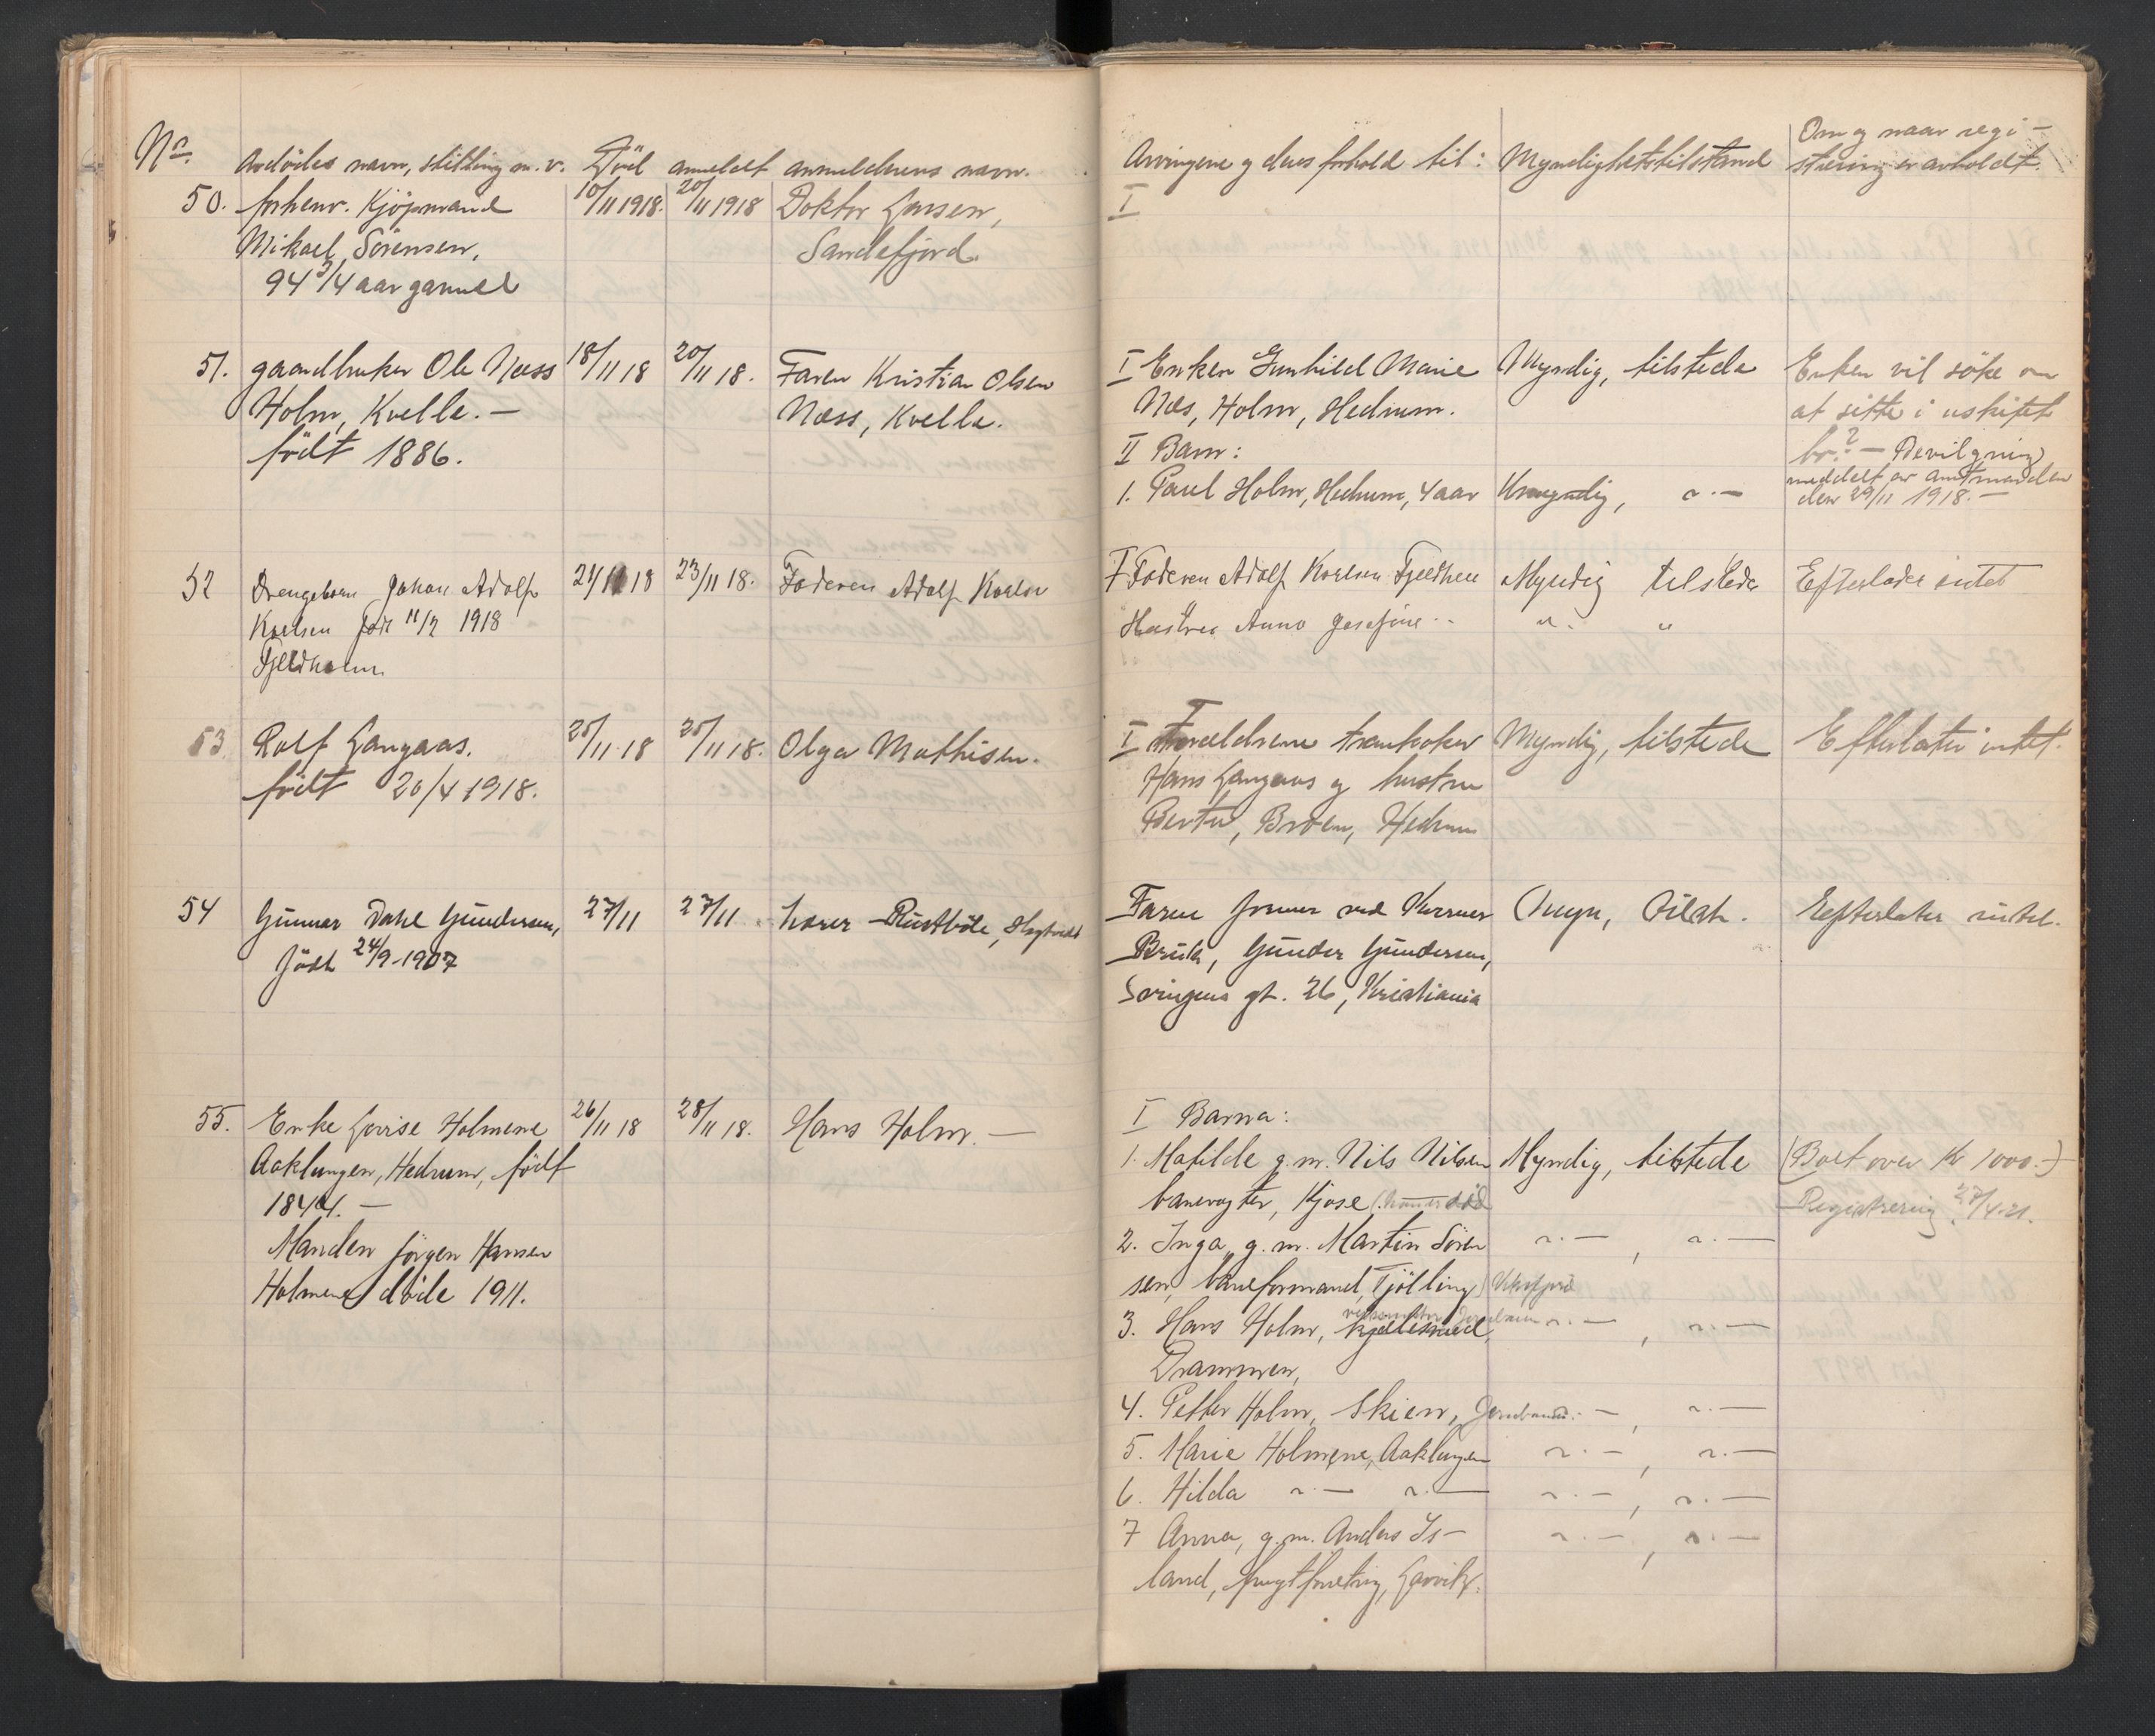 No. Avdödes navn, stilling m. v. Död anmeldt anmelderens navn.
50. forhenv. Kjöpmand 10/11 1918. 20/11 1918 Doktor Larsen,
Mikael Sörensen, Sandefjord.
94 3/4 aar gammel
51. gaardbruker Ole Næss 18/11 18 20/11 18. Faren Kristian Olsen
Holm, Kvelle. — Næss, Kvelle.
födt 1886.
52 Drengebarn Johan Adolf 21/11 18 23/11 18. Faderen Adolf Karlsen
Karlsen föd 11/2 1918
Fjeldheim
53. Rolf Langaas. 25/11 18 25/11 18. Olga Mathisen.
födt 20/4 1918.
54 Gunnar Dahl Gundersen, 27/11 27/11
födt 24/9-1907
55. Enke Lovise Holmene 26/11 18 28/11 18. Hans Holm. —
Aaklungen, Hedrum, födt
1844. —
Manden Jörgen Hansen
Holmene döde 1911.
Arvingene og deres forhold til: Myndighetstilstand Om og naar regi-
strering er avholdt.
I
I Enken Gunhild Marie Myndig, tilstede Enken vil söke om
Næs, Holm, Hedrum. at sitte i uskiftet
II Barn: bo? — Bevilgning
1. Paul Holm, Hedrum, 4 aar Umyndig, " — meddelt av amtmanden
den 29/11 1918. —
I Faderen Adolf Karlsen Fjeldheim Myndig tilstede Efterlader intet
Hustru Anna Josefine " " "
I Forældrene Myndig, tilstede Efterlater intet.
Hans Langaas og hustru
Berta, Broen, Hedrum
Faren former ved Kværner Efterlater intet.
Bruk, Gunder Gundersen,
gt. 26, Kristiania
I Barna:
1. Matilde g. m. Nils Nilsen Myndig, tilstede (Boet over Kr 1000.—)
banevogter, Kjose Registrering 27/4-21.
2. Inga g. m. Martin Sören " — , " —
sen, baneformand, Tjölling
3. Hans Holm, kjelesmed, " — , " —
Drammen,
4. Petter Holm, Skien, " — , " —
5. Marie Holmene, Aaklungen " — , " —
6. Hilda " — " — " — , " —
7 Anna, g. m. Anders Is- " — , " —
land, Larvik.